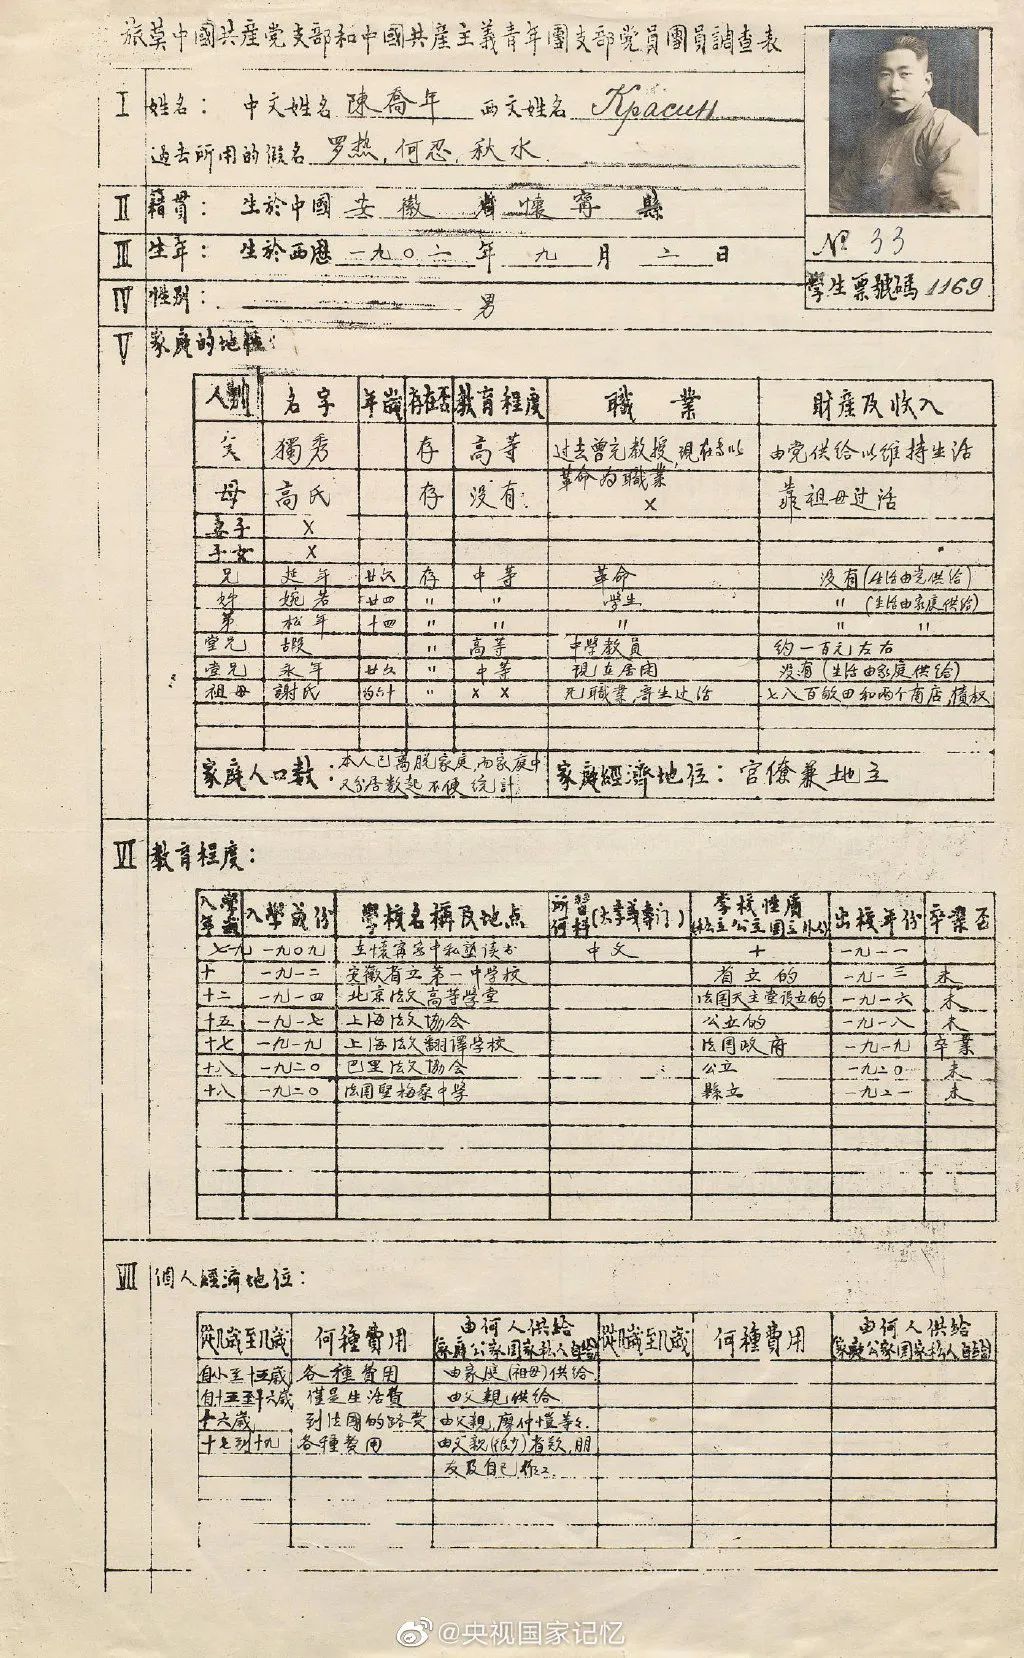 旅莫中國共產党支部和中國共產主義青年團支部党員團員調查表
I 姓名： 中文姓名 陳喬年 西文姓名 Красин
過去所用的假名 罗热，何忍，秋水
II 籍貫： 生於中國 安徽 省 懷寧 縣
№ 33
III 生年： 生於西歷 一九〇二 年 九 月 二 日
學生票號碼 1169
IV 性別： 男
V 家庭的地位：
人別 名字 年歲 存在否 教育程度 職業 財產及收入
父 獨秀 存 高等 过去曾充教授，現在以革命为職業 由党供给以維持生活
母 高氏 存 没有 × 靠祖母过活
妻子 ×
子女 ×
兄 延年 廿六 存 中等 革命 没有（生活由党供给）
姊 婉若 廿四 〃 〃 学生 〃（生活由家庭供给）
弟 松年 十四 〃 〃 〃 〃 〃
堂兄 遐 〃 高等 中學教員 约一百元左右
堂兄 永年 廿六 〃 中等 現在居闲 没有（生活由家庭供给）
祖母 謝氏 〃 × × 无職業，寄生过活 七八百畝田和两个商店，債权
家庭人口數：本人已离脱家庭，而家庭中又分居数起不便统計 家庭經濟地位：官僚兼地主
VI 教育程度：
入學年歲 入學歲份 學校名稱及地点 所習何科（大學或專门） 学校性质（私立公立国立外人） 出校年份 卒業否
七-九 一九〇九 在懷寧家中私塾读书 中文 十 一九一一
十 一九一二 安徽省立第一中学校 省立的 一九一三 未
十二 一九一四 北京法文高等學堂 法国天主堂设立的 一九一六 未
十五 一九一七 上海法文協会 公立的 一九一八 未
十七 一九一九 上海法文翻譯学校 法国政府 一九一九 卒業
十八 一九二〇 巴里法文協会 公立 一九二〇 未
十八 一九二〇 法国聖梅桑中学 縣立 一九二一 未
VII 個人經濟地位：
從几歲至几歲 何種費用 由何人供给（家庭公家国家私人自给） 從几歲至几歲 何種費用 由何人供给（家庭公家国家私人自给）
自小至十五歲 各種費用 由家庭（祖母）供给
自十五至十六歲 僅是生活費 由父親供给
十六歲 到法國的路费 由父親，廖仲愷等
十七到十九 各種費用 由父親（很少）者欵，朋
友及自己作工
@央视国家记忆